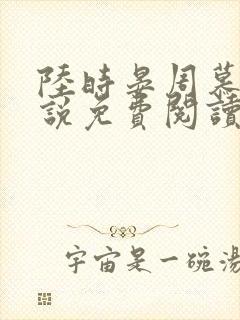 陸時晏周慕
說免費閱讀
宇宙是一碗湯